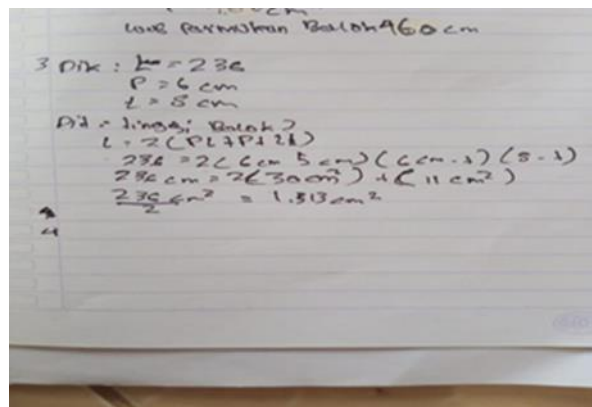 Luas Permukaan Balok 960 cm
3 Dik : L = 236
P = 6 cm
L = 5 cm
Dit = tinggi Balok ?
L = 2 (PL + Pt + Lt)
236 = 2 (6 cm 5 cm) (6 cm - t) (5 - t)
236 cm = 2 (30 cm²) + (11 cm²)
236 cm² / 2 = 1.313 cm²
4